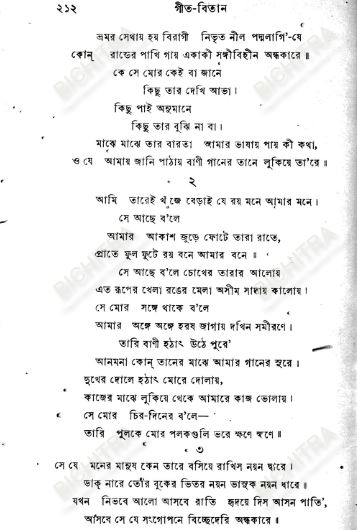 ২১২ গীত-বিতান
ভ্রমর সেথায় হয় বিরাগী নিভৃত নীল পদ্মলাগি'-যে
কোন্ রাতের পাখি গায় একাকী সঙ্গীবিহীন অন্ধকারে॥
কে সে মোর কেই বা জানে
কিছু তার দেখি আভা।
কিছু পাই অনুমানে
কিছু তার বুঝি না বা।
মাঝে মাঝে তার বারতা আমার ভাষায় পায় কী কথা,
ও যে আমায় জানি পাঠায় বাণী গানের তানে লুকিয়ে তা'রে॥
২
আমি তারেই খুঁজে বেড়াই যে রয় মনে আমার মনে।
সে আছে ব'লে
আমার আকাশ জুড়ে ফোটে তারা রাতে,
প্রাতে ফুল ফুটে রয় বনে আমার বনে॥
সে আছে ব'লে চোখের তারার আলোয়
এত রূপের খেলা রঙের মেলা অসীম সাদায় কালোয়।
সে মোর সঙ্গে থাকে ব'লে
আমার অঙ্গে অঙ্গে হরষ জাগায় দখিন সমীরণে।
তারি বাণী হঠাৎ উঠে পূরে'
আনমনা কোন্ তানের মাঝে আমার গানের সুরে।
দুখের দোলে হঠাৎ মোরে দোলায়,
কাজের মাঝে লুকিয়ে থেকে আমারে কাজ ভোলায়।
সে মোর চির-দিনের ব'লে—
তারি পুলকে মোর পলকগুলি ভরে ক্ষণে ক্ষণে॥
৩
সে যে মনের মানুষ কেন তারে বসিয়ে রাখিস্ নয়ন দ্বারে।
ডাক্ নারে তোর বুকের ভিতর নয়ন ভাসুক নয়ন ধারে॥
যখন নিভবে আলো আসবে রাতি হৃদয়ে দিস্ আসন পাতি',
আসবে সে যে সংগোপনে বিচ্ছেদেরি অন্ধকারে॥